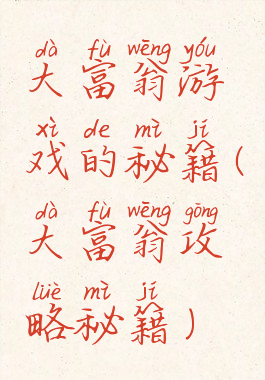 dà fù wēng yóu
大富翁游
xì de mì jí
戏的秘籍(
dà fù wēng gōng
大富翁攻
lüè mì jí
略秘籍)